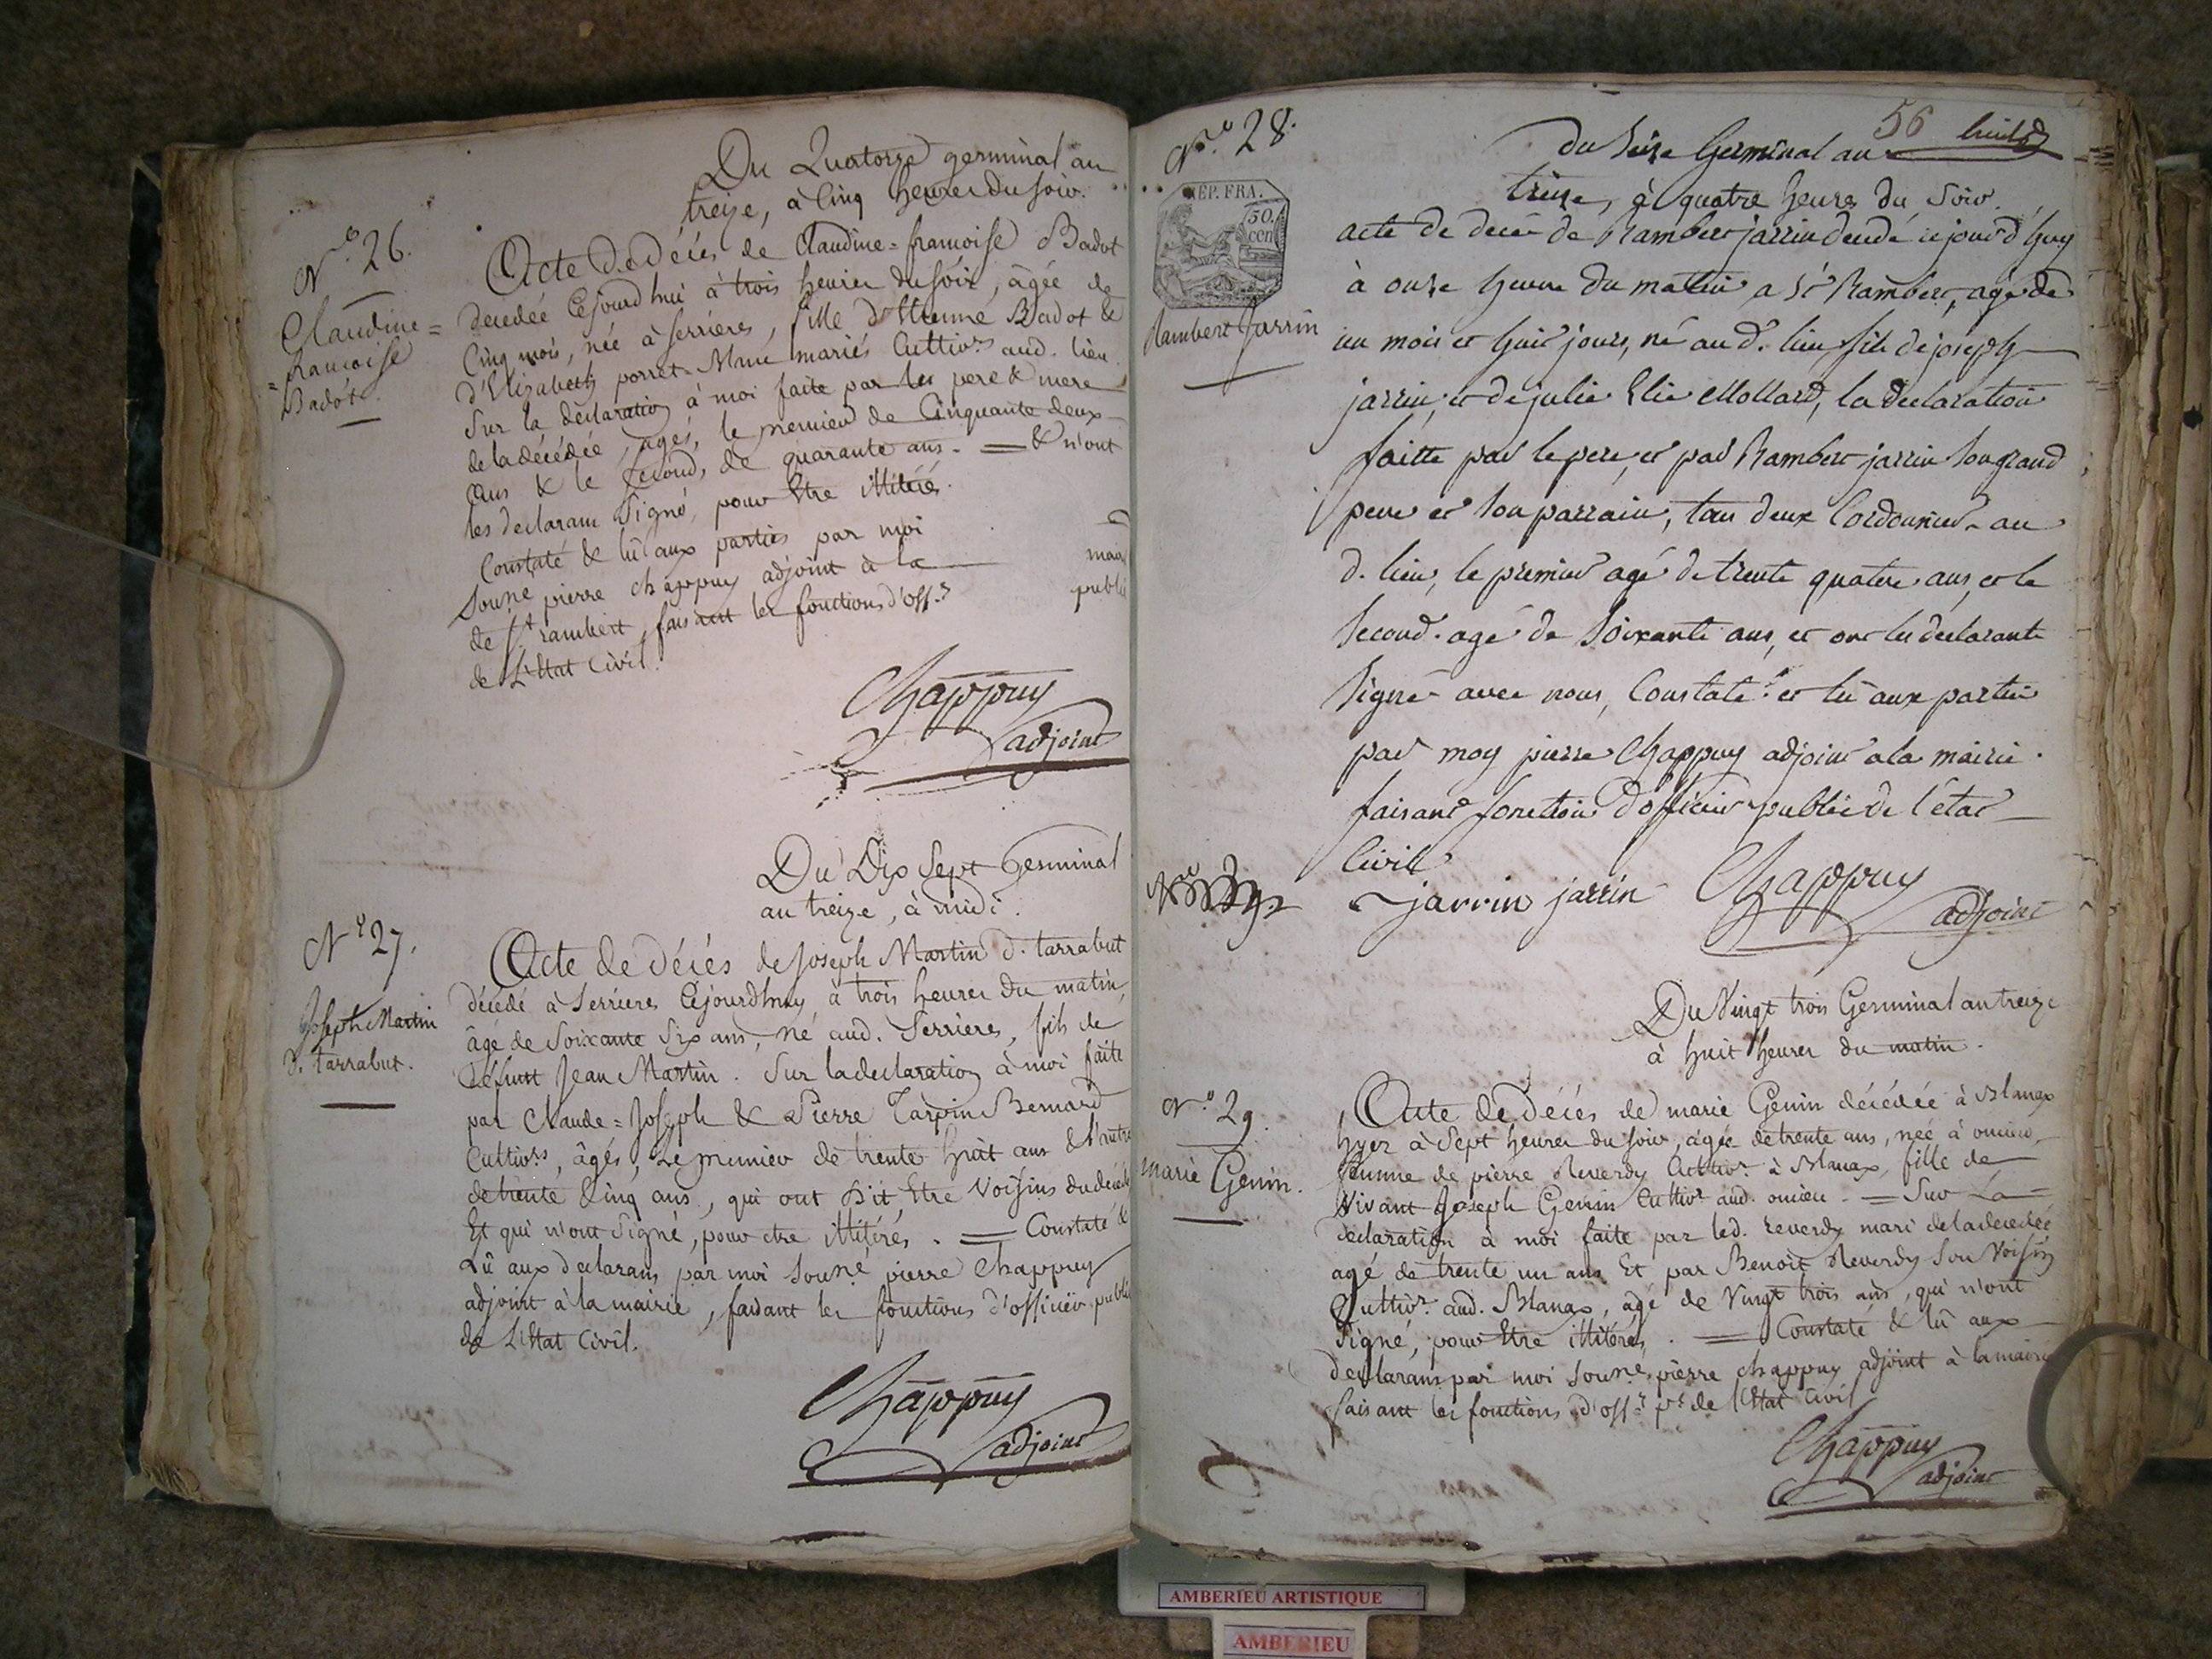 Du Quatorze germinal an
treize, à Cinq heures du soir.
N.º 26.
Claudine=
=francoise
Badot.
Acte de décés de Claudine=francoise Badot
decedée Cejourdhui à trois heures du soir, âgée de
Cinq mois, née à serrieres, fille d'Etienne Badot &
d'Elisabeth porret mariés Cultiv.rs aud. lieu
Sur la déclaration à moi faite par les pere & mere
de la décédée, agés, le premier de Cinquante deux
ans & le second, de quarante ans. = & n'ont
les declarans signé, pour Etre illitérés.
Constaté & lû aux parties par moi
Souné pierre chappuy adjoint à la mai
de St rambert, faisant les fonctions d'off.r publi
de L'Etat Civil.
Chappuy
adjoint
Du Dix Sept Germinal
an treize, à midi.
N.º 27.
Joseph Martin
d. tarrabut.
Acte de décés de Joseph Martin d. tarrabut
décédé à Serrieres Cejourdhuy à trois heures du matin,
âgé de Soixante Six ans, né aud. Serrieres, fils de
Défunt Jean Martin. Sur la declaration à moi faite
par Claude=Joseph & Pierre Tarpin Bernard
Cultiv.rs, âgés, Le premier de trente huit ans & l'autre
de trente Cinq ans, qui ont Dit Etre Voisins du décédé
Et qui n'ont Signé, pour etre illitérés. = Constaté &
Lû aux declarans par moi Souné pierre Chappuy
adjoint à la mairie, faisant les fonctions d'officier public
de L'Etat Civil.
Chappuy
adjoint
56
N.º 28.
du Seize Germinal an
treize, à quatre heures du Soir.
REP. FRA.
50.
cen
Rambert Jarrin
acte de decé de Rambert jarrin decedé cejourd'huy
à onze heures du matin a St Rambert, agé de
un mois et huit jours, né aud. lieu fils de joseph
jarrin, et de julie Elie Mollard, la declaration
faitte par le pere, et par Rambert jarrin son grand
pere et son parrain, tous deux Cordonnier au
d. lieu, le premier agé de trente quatre ans, et le
Second. agé de Soixante ans, et ont les declarants
Signé avec nous, Constaté et lû aux parties
par moy pierre Chappuy adjoint a la mairie.
faisant fonction d'officier public de l'état
Civil
jarrin jarrin Chappuy
adjoint
Du Vingt trois Germinal an treize
à huit heures du matin.
N.º 29.
marie Genin.
Acte de Décés de marie Genin décédée à Blanaz
hyer à Sept heures du soir, agée de trente ans, neé à oncieu,
femme de pierre Reverdy Cultiv.r à Blanaz, fille de
Vivant Joseph Genin Cultiv.r aud. oncieu. = Sur La
declaration à moi faite par led. reverdy mari de la decedée
agé de trente un ans Et par Benoit Reverdy Son Voisin
Cultiv.r aud. Blanaz, agé de Vingt trois ans, qui n'ont
Signé, pour Etre illitérés. = Constaté & lû aux
declarans par moi Souné, pierre chappuy adjoint à la mairie
faisant les fonctions d'off.r p.c de l'Etat Civil
Chappuy
adjoint
AMBERIEU ARTISTIQUE
AMBERIEU